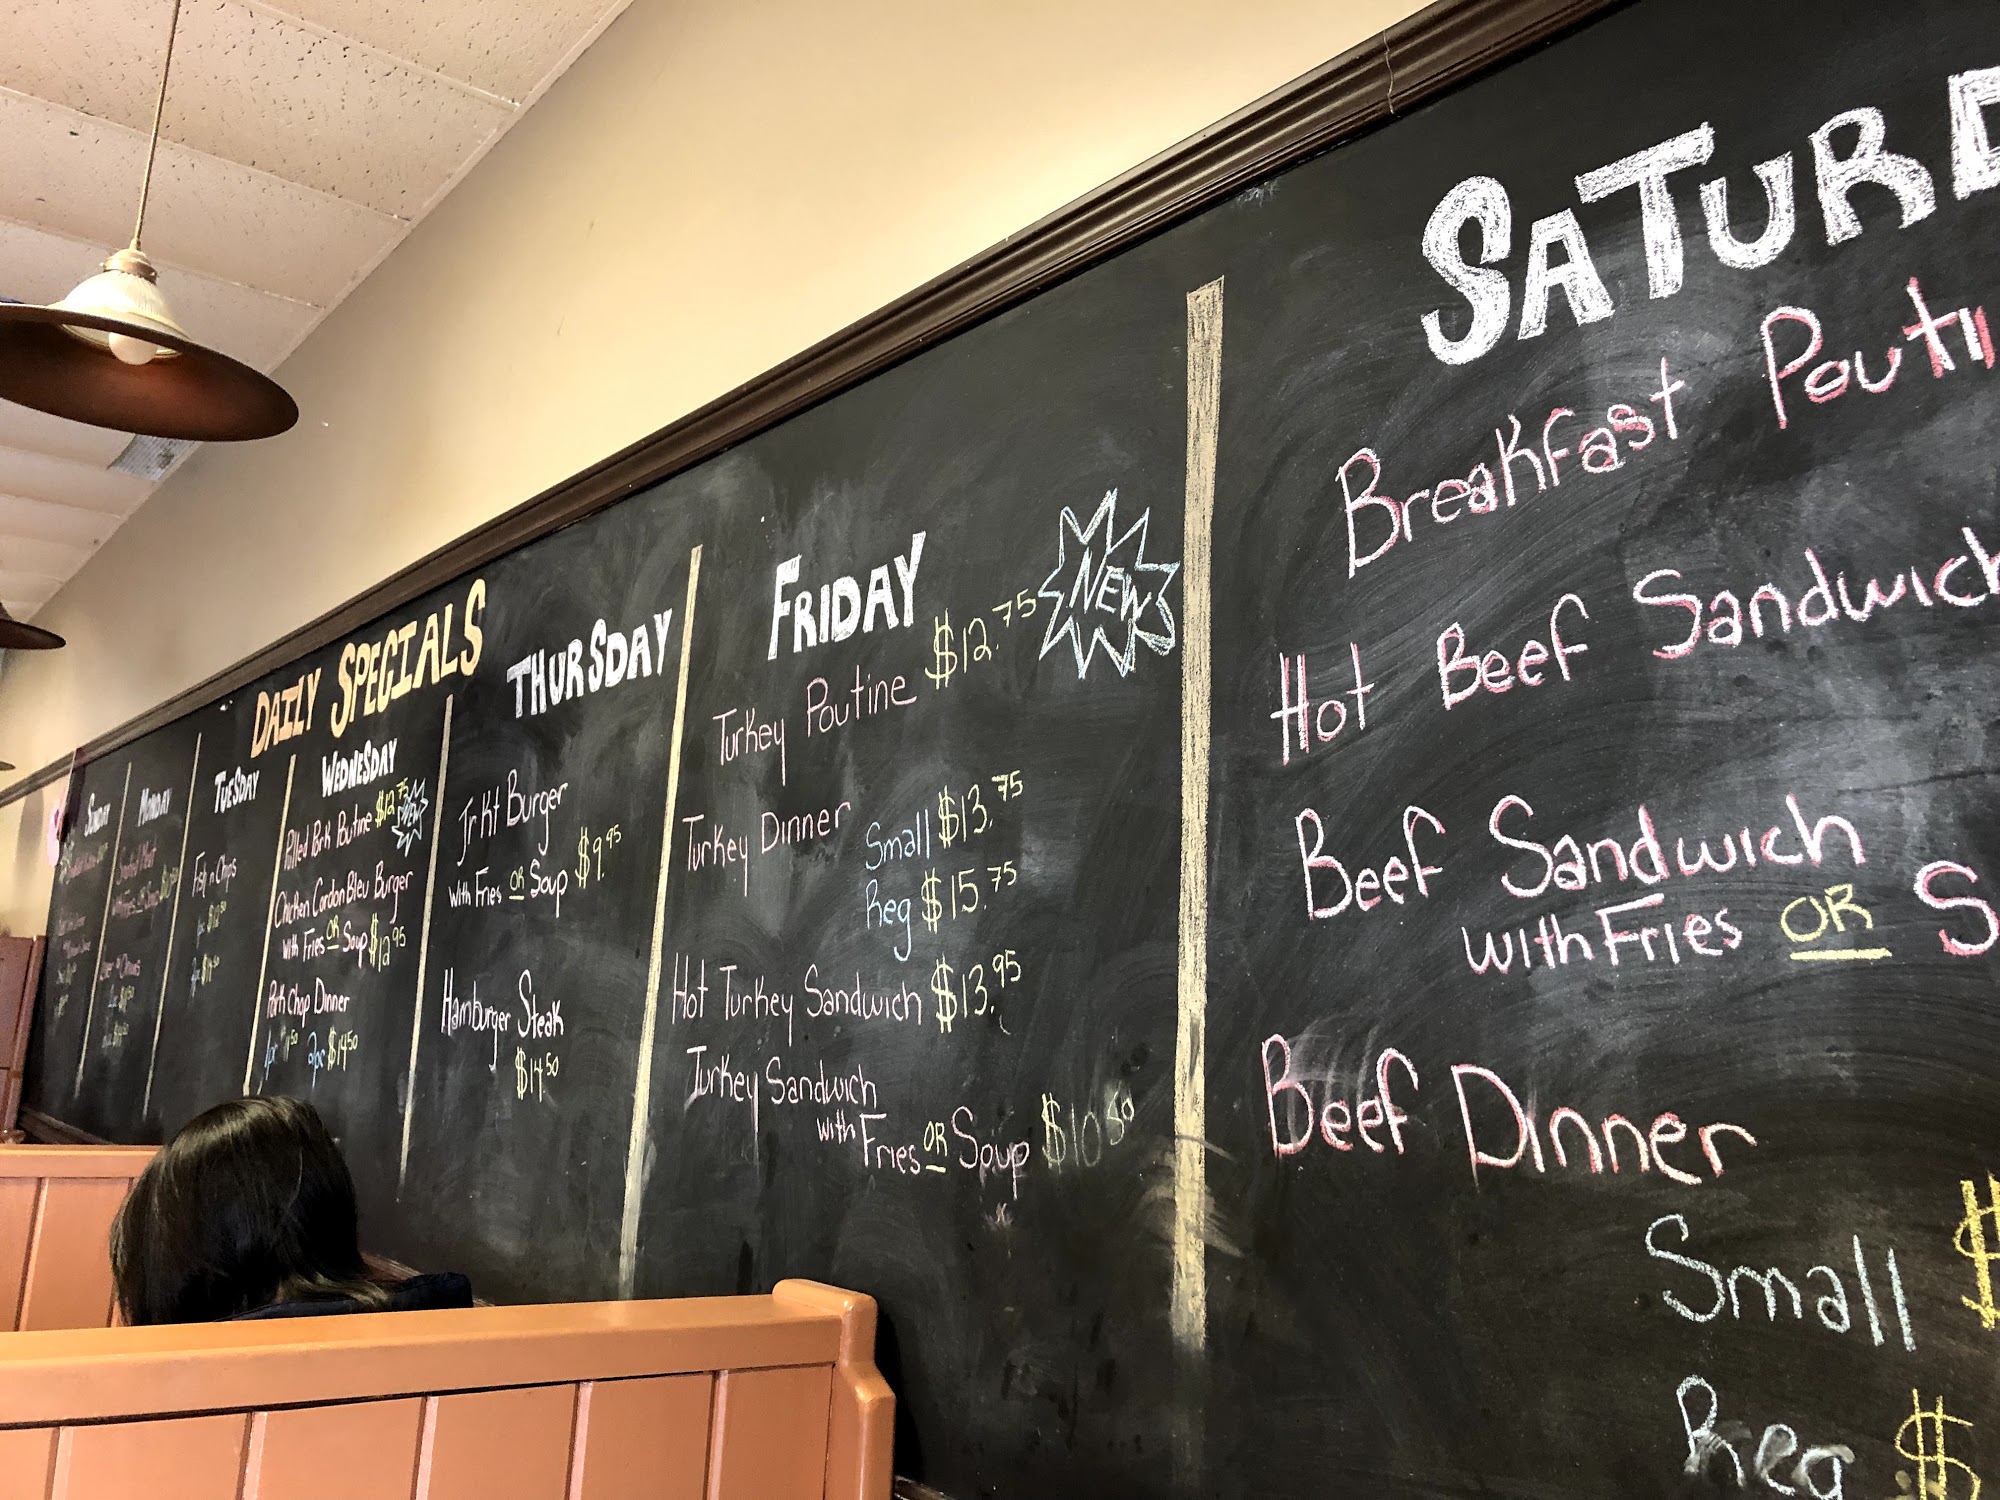 DAILY SPECIALS
SUNDAY
MONDAY
Smoked Meat
with Fries OR Soup
Liver n Onions
TUESDAY
Fish n Chips
1pc $12.50
2pc $14.50
WEDNESDAY
Pulled Pork Poutine $12.75
NEW
Chicken Cordon Bleu Burger
with Fries OR Soup $12.95
Pork Chop Dinner
1pc 2pc $14.50
THURSDAY
Jr Kt Burger
with Fries OR Soup $9.95
Hamburger Steak
$14.50
FRIDAY
Turkey Poutine $12.75
NEW
Turkey Dinner
Small $13.75
Reg $15.75
Hot Turkey Sandwich $13.95
Turkey Sandwich
with Fries OR Soup $10.50
SATURD
Breakfast Pouti
Hot Beef Sandwich
Beef Sandwich
with Fries OR S
Beef Dinner
Small $
Reg $